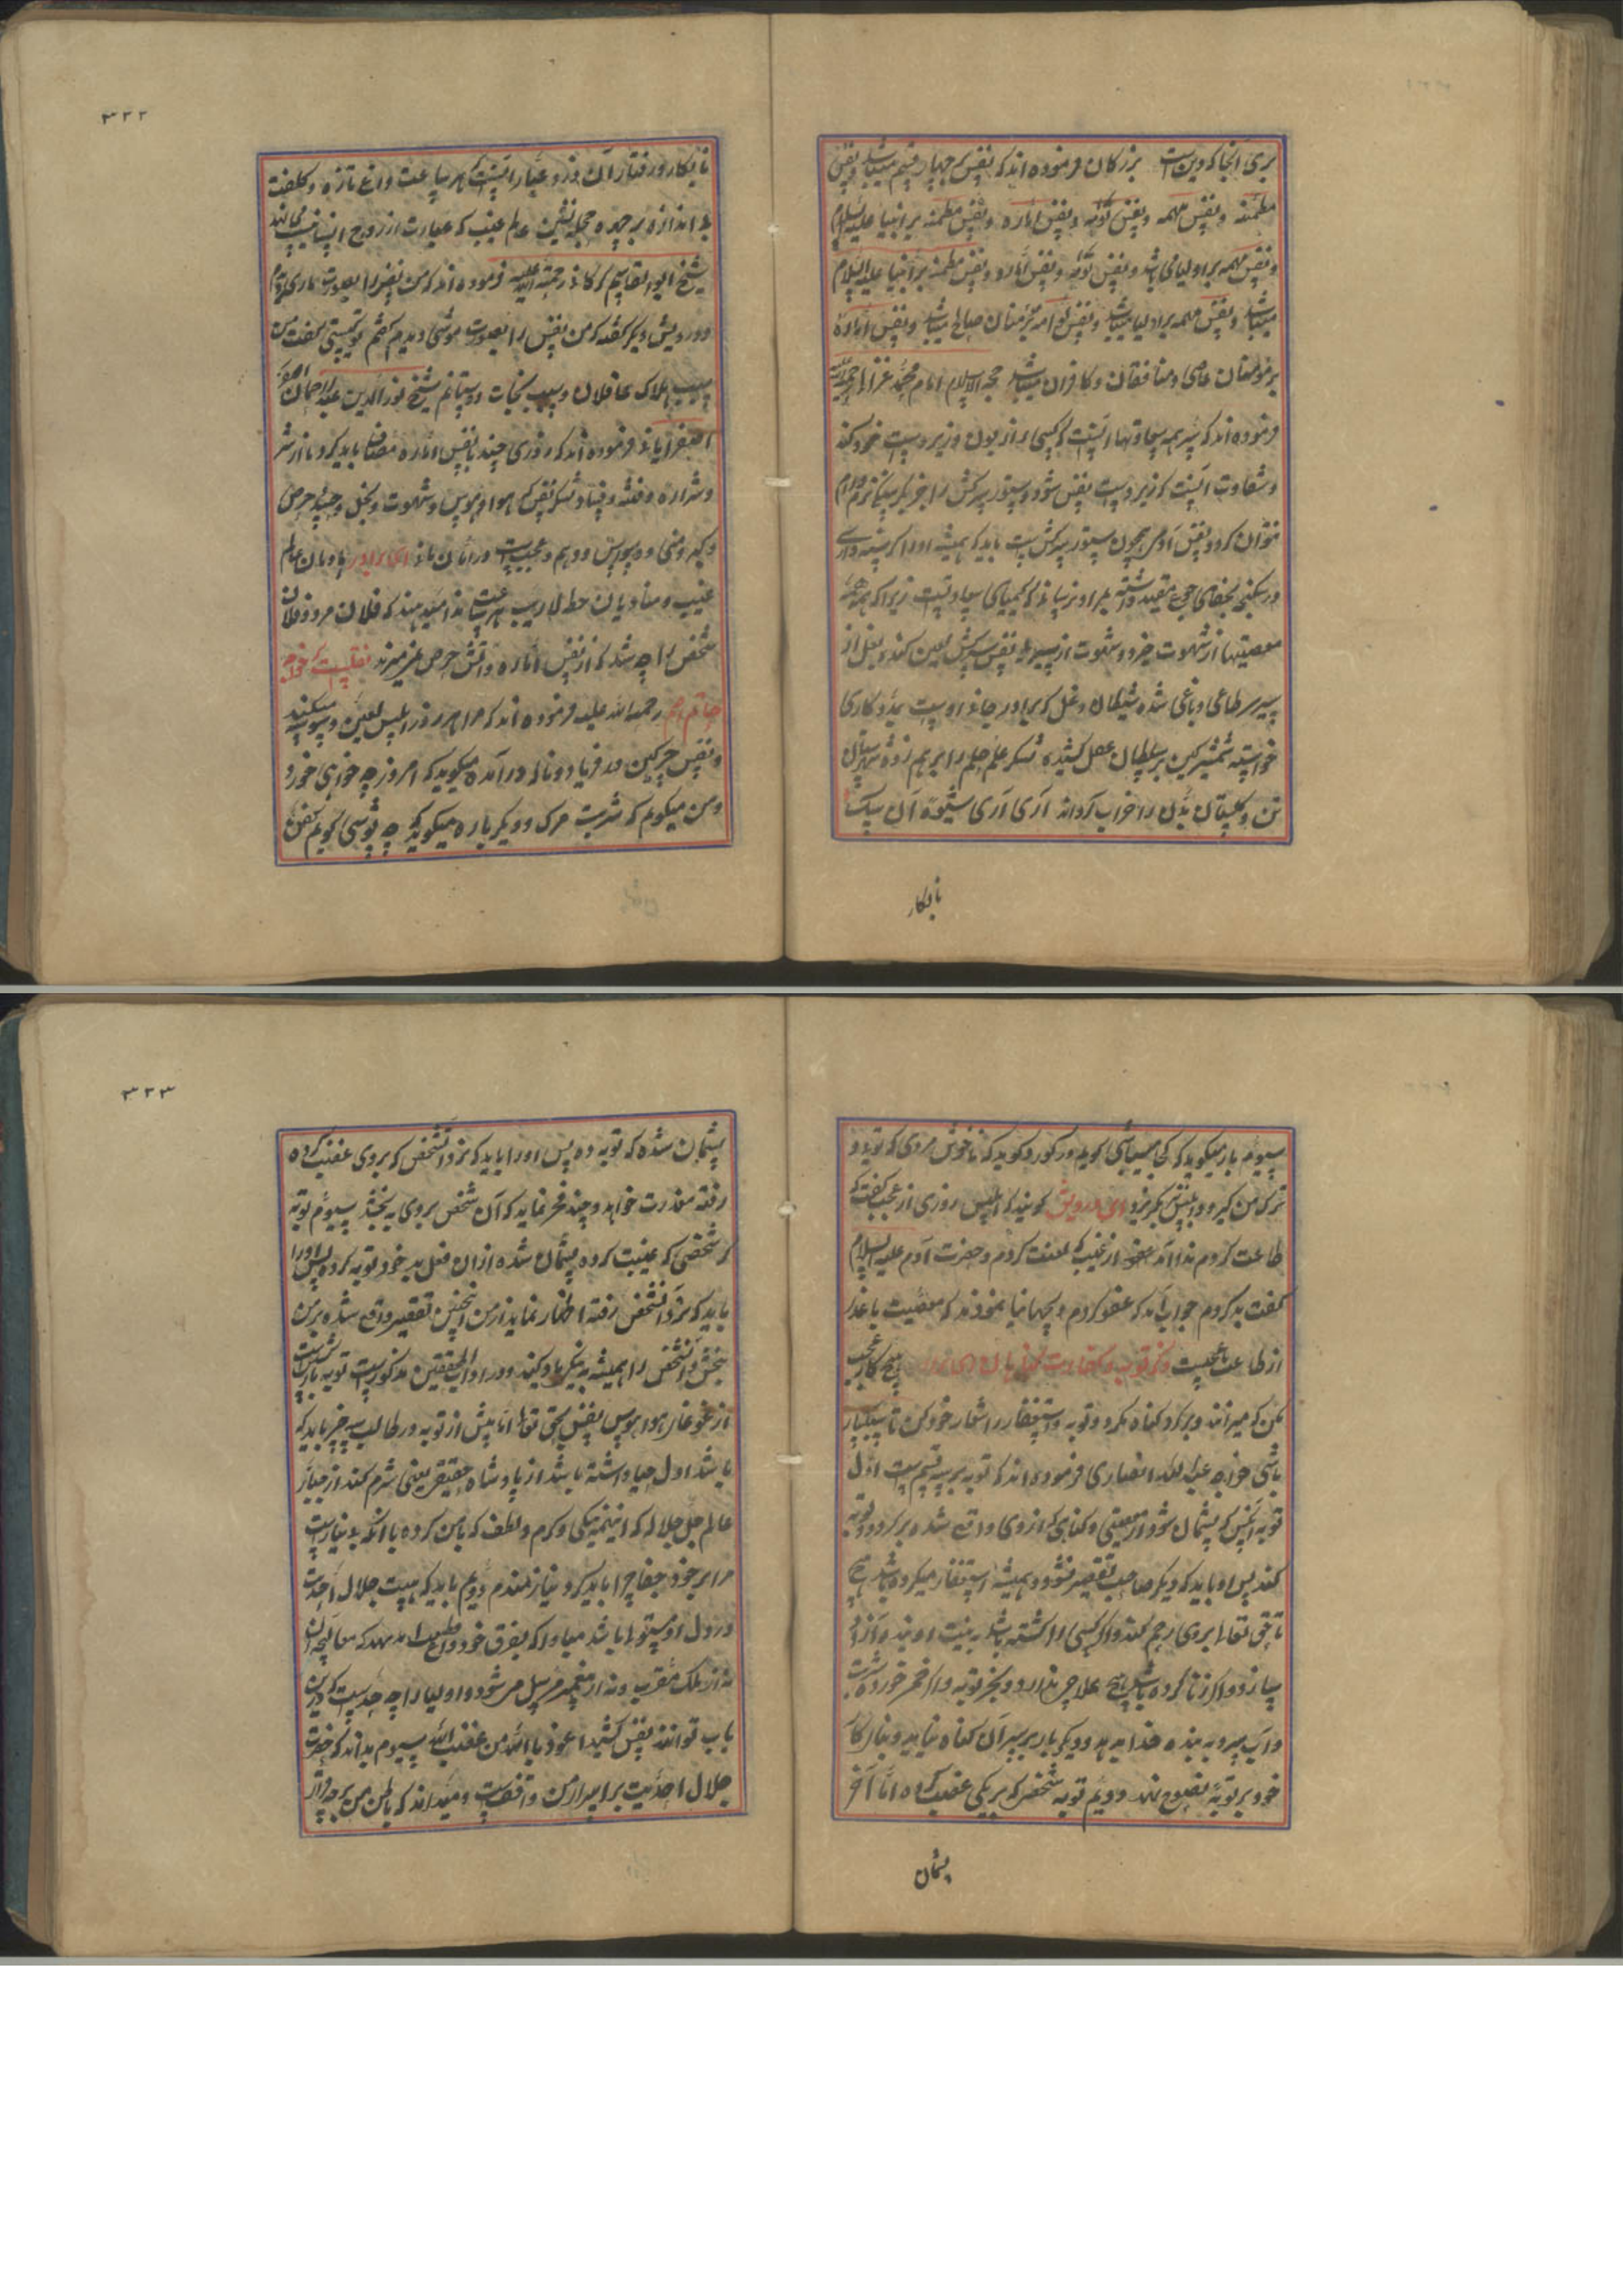 بری آنجا که دین است بزرگان فرموده اند که نفس بر چهار قسم میباشد نفس
مطمئنه و نفس ملهمه و نفس لوامه و نفس اماره و نفس مطمئنه بر انبیا علیه السلام
و نفس ملهمه بر اولیا می باشد و نفس لوامه و نفس اماره و نفس مطمئنه بر انبیا علیه السلام
میباشد و نفس ملهمه بر اولیا میباشد و نفس لوامه بر مؤمنان صالح میباشد و نفس اماره
بر مؤمنان عاصی و منافقان و کافران میباشد حجة الاسلام امام محمد غزالی رحمة الله
فرموده اند که سر همه سعادتها اینست که کسی را زبون و زیردست خود کند
و شقاوت آنست که زیردست نفس شود و ستور سرکش را جز بگرسنگی نرم و رام
نتوان کرد و نفس آدمی همچون ستور سرکش است باید که همیشه او را گرسنه داری
معصیتها از شهوت خیزد و شهوت از سیری نفس سرکش
پیر سر طاغی و باغی شده شیطان دغل که برادر خانه اوست
خواسته شمشیر کین بر سلطان عقل کشیده لشکر علم حلم را برهم زده شهرستان
تن و گلستان بدن را خراب گرداند آری آری شیوه آن سگ
نابکار
۳۲۲
نابکار و رفتار آن دزد عیار اینست که هر ساعت داغ تازه و کلفت
بی اندازه بر چهره حجله نشین عالم غیب که عبارت از روح انسانیست می ماند
شیخ ابوالقاسم کرکانی رحمة الله علیه فرموده اند که من نفس را بصورت ماری دیدم
و درویش دیگر گفته که من نفس را بصورت موشی دیدم گفتم تو کیستی گفت من
سبب هلاک غافلان و سبب نجات دوستانم شیخ نورالدین عبدالرحمان
اسفراینی فرموده اند که روزی چند با نفس اماره مصاف باید کرد تا از شر
و شراره و فتنه و فساد لشکر نفس که هوا و هوس و شهوت و بخل و حسد و حرص
و کبر و منی و وسواس و وهم و عجب است در امان مانی ای برادر هاویان عالم
غیب و منادیان خطه لاریب هر ساعت ندا میدهند که فلان مرد و فلان
شخص را چه شد که از نفس اماره و آتش حرص نمیگریزد نقلست که خواجه
حاتم اصم رحمة الله علیه فرموده اند که مرا هر روز ابلیس لعین وسوسه میکند
و نفس چرکین در فریاد و ناله درآمده میگوید که امروز چه خواهی خورد
و من میگویم که شربت مرگ و دیگر باره میگوید که چه پوشی گویم کفن
سیوم باز میگوید که کجا میباشی گویم در گور و گوید که ناخوش مردی که تویی و
ترک من گیرد و ابلیس بگریزد ای درویش گویند که ابلیس روزی از عجب گفت که
طاعت کردم ندا آمد از غیب که لعنت کردم و حضرت آدم علیه السلام
گفت بد کردم جواب آمد که عفو کردم تا بجهانیان نمودند که معصیت با عذر
از طاعت با عجب است هیچ کار عجب
مکن که میراند و برگرد گناه مگرد و توبه و استغفار را شعار خود کن تا سبکبار
باشی خواجه عبدالله انصاری فرموده اند که توبه بر سه قسم است اول
توبه آنکس که پشیمان شود از معصیتی و گناهی که از وی واقع شده برگردد و توبه
کند پس او باید که دیگر صاحب تقصیر نشود و همیشه استغفار میکرده باشد
تا حق تعالی بر وی رحم کند و اگر کسی را کشته باشد به نیت او بنده آزاد
سازد و اگر زنا کرده باشد هیچ علاجی ندارد و بجز توبه و اگر خمر خورده شربت
و آب سرد به بنده خدا بدهد و دیگر بار بر سر آن گناه نیاید و بنای کار
خود بر توبه نصوح نهد دوم توبه شخصی که بر یکی غضب کرده اما آخر
پشیمان
۳۲۳
پشیمان شده که توبه ده پس او را باید که نزد آن شخص که بر وی غضب کرده
رفته معذرت خواهد و چند عجز نماید که آن شخص بر وی ببخشد سیوم توبه
شخصی که غیبت کرده پشیمان شده از آن فعل بد خود توبه کرده پس او را
باید که نزد آن شخص رفته اظهار نماید از من اینچنین تقصیر واقع شده بر من
ببخش و آن شخص را همیشه به نیکی یاد کند و در آداب المحققین مذکور است توبه بازگشت است
از غوغای هوا و هوس نفس بحق تعالی اما پیش از توبه در طالب سه چیز باید که
باشد اول حیا داشته باشد از پادشاه حقیقی یعنی شرم کند از جبار
عالم جل جلاله که اینهمه نیکی و کرم و لطف که با من کرده با آنکه بی نیاز است
مرا بر خود جفا چرا باید کرد و نیازمندم دویم باید که هیبت جلال احدیت
در دل او مستولی باشد مبادا که بفرق خود داغ قطیعت نهد که معالجه آن
نه از ملک مقرب و نه از پیغمبر مرسل میشود و اولیا را چه حد است که درین
باب توانند نفس کشید اعوذ بالله من غضب الله سیوم بداند که حضرت
جلال احدیت بر اسرار من واقفست و میداند که باطن من بر چه قرار